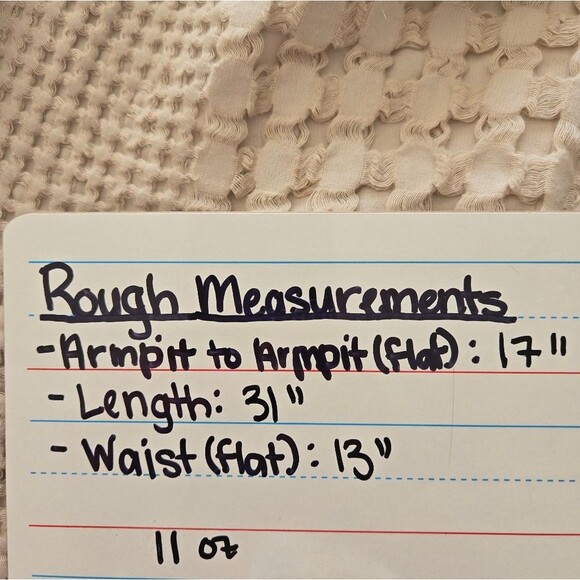 Rough Measurements
- Armpit to Armpit (flat) : 17"
- Length: 31"
- Waist (flat) : 13"
11 oz